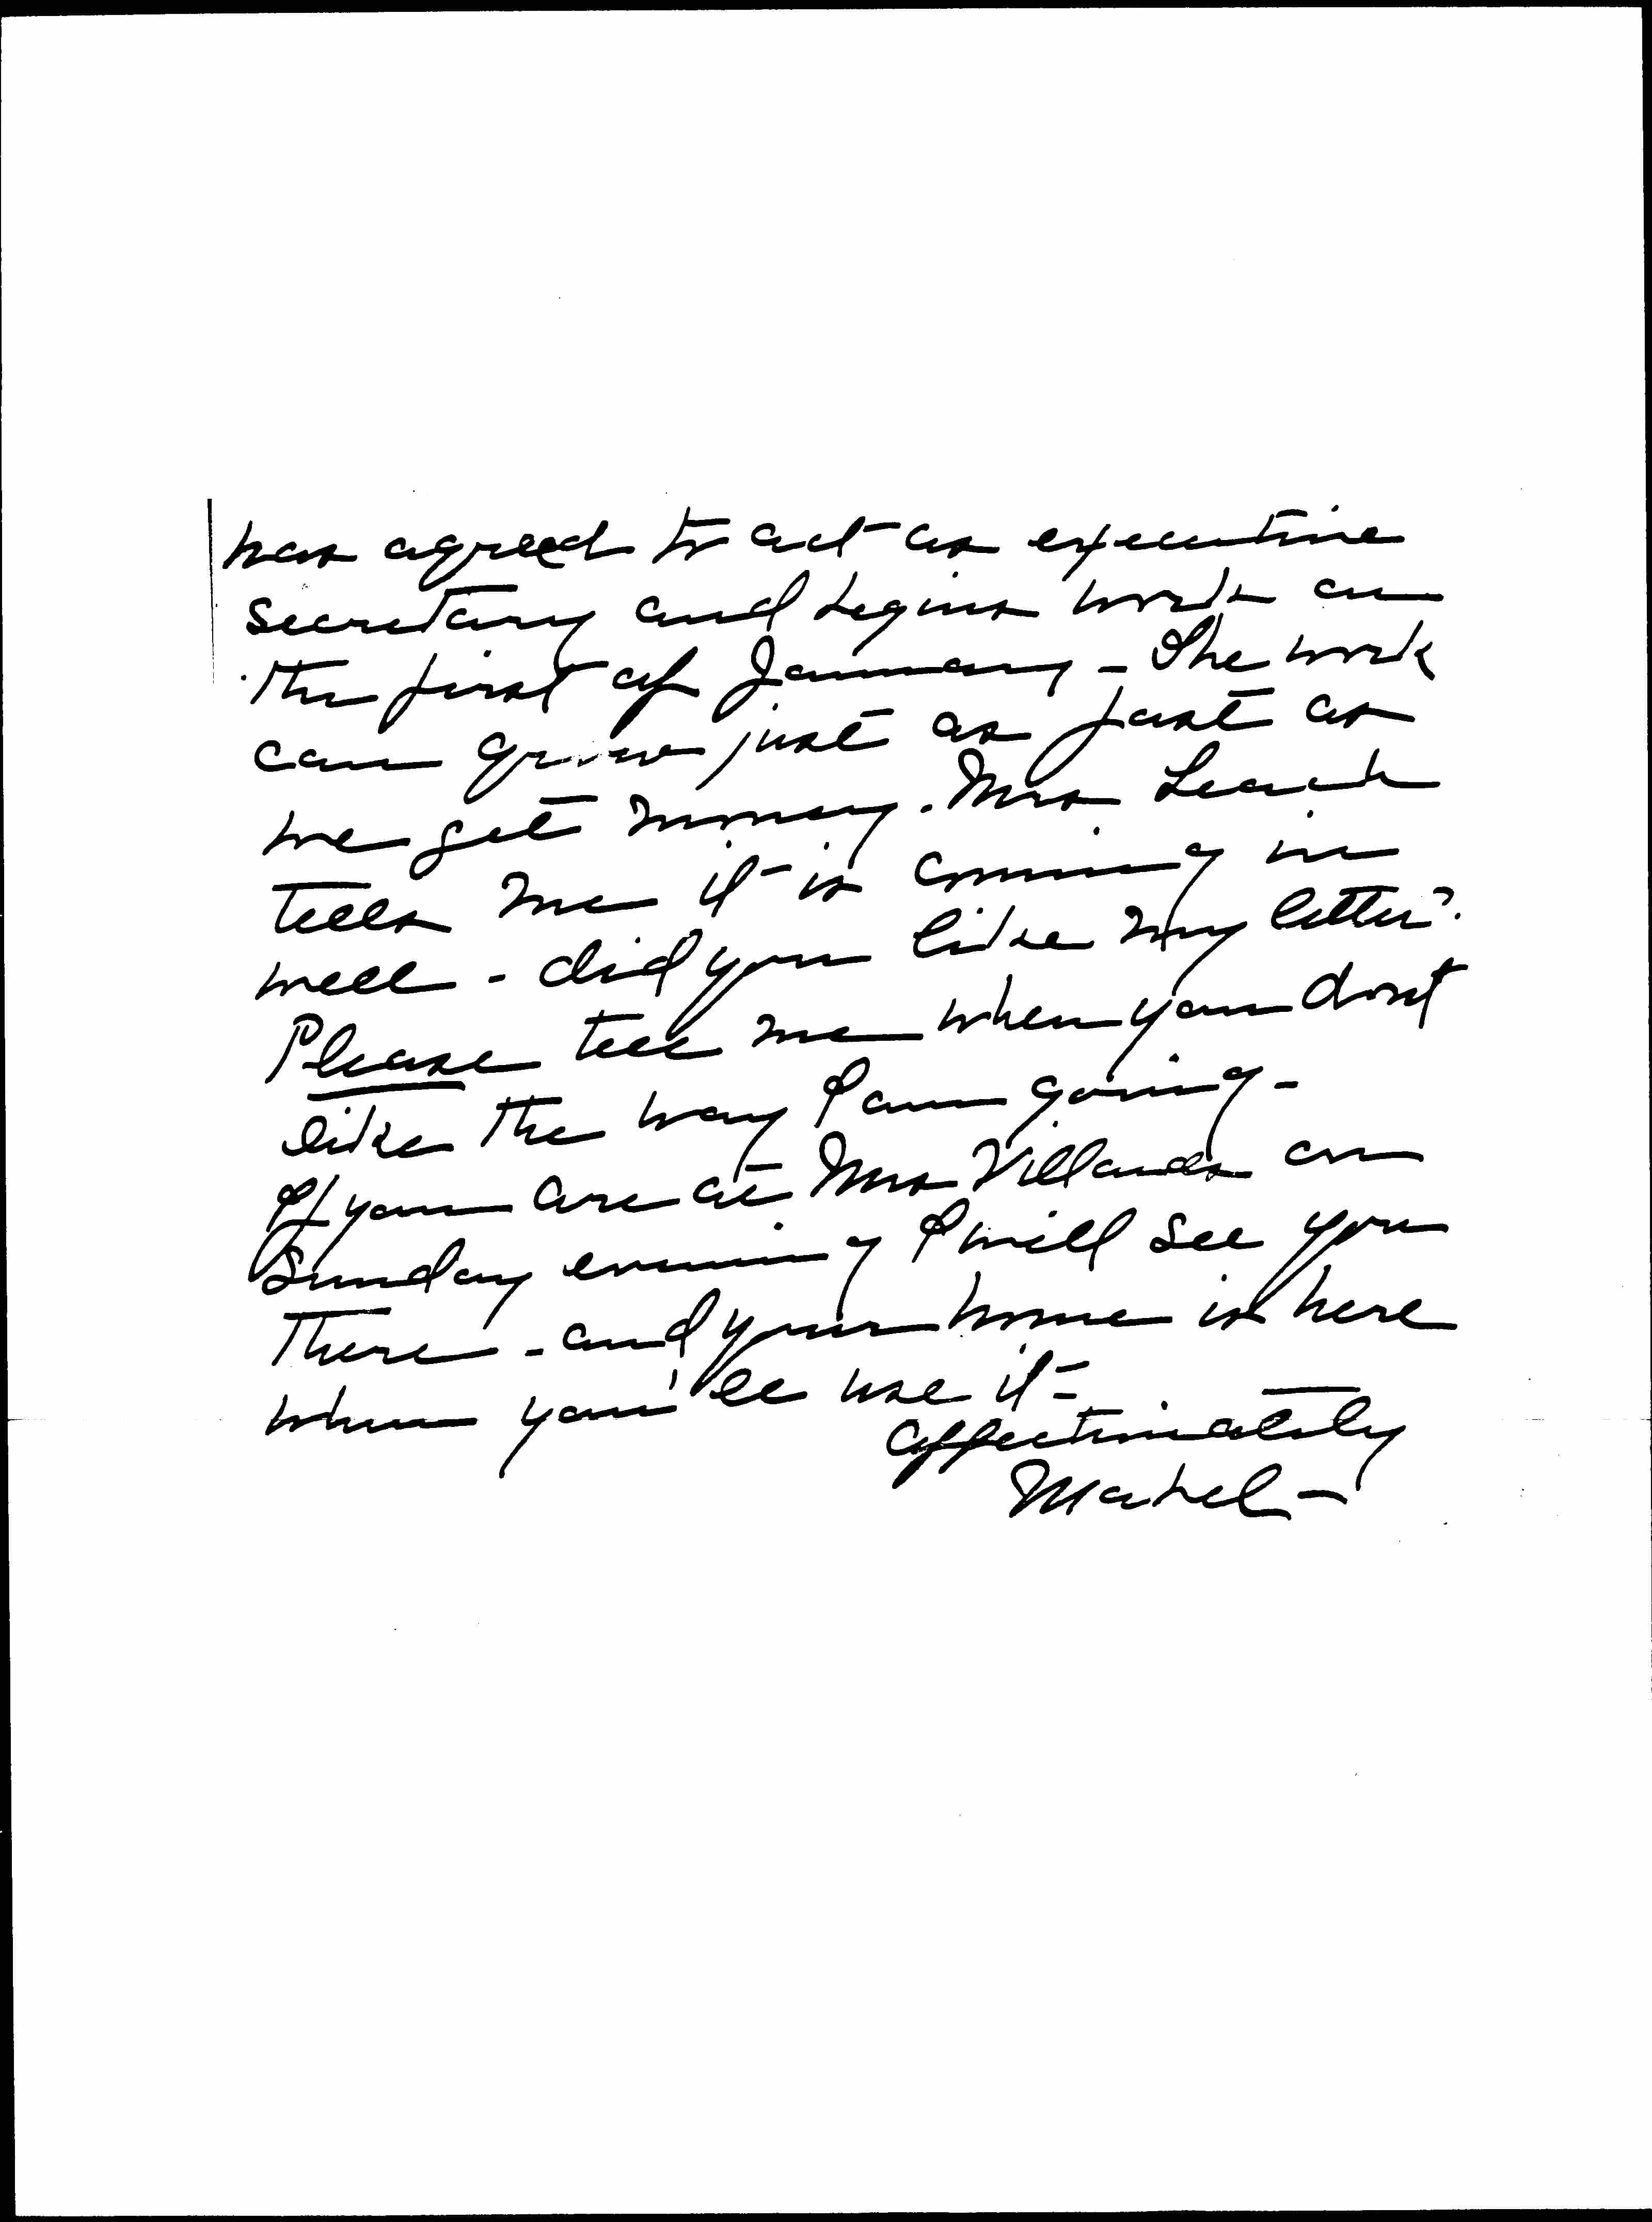 has agreed to act as executive
secretary and begins work on
the first of January - The work
can grow just as fast as
we get money. Mrs Leach
tells me it is coming in
well - did you like my letter?
Please tell me when you dont
like the way I am going -
If you are at Mrs Villards on
Sunday evening I will see you
there - and your home is here
when you'll use it -
affectionately
Mabel -